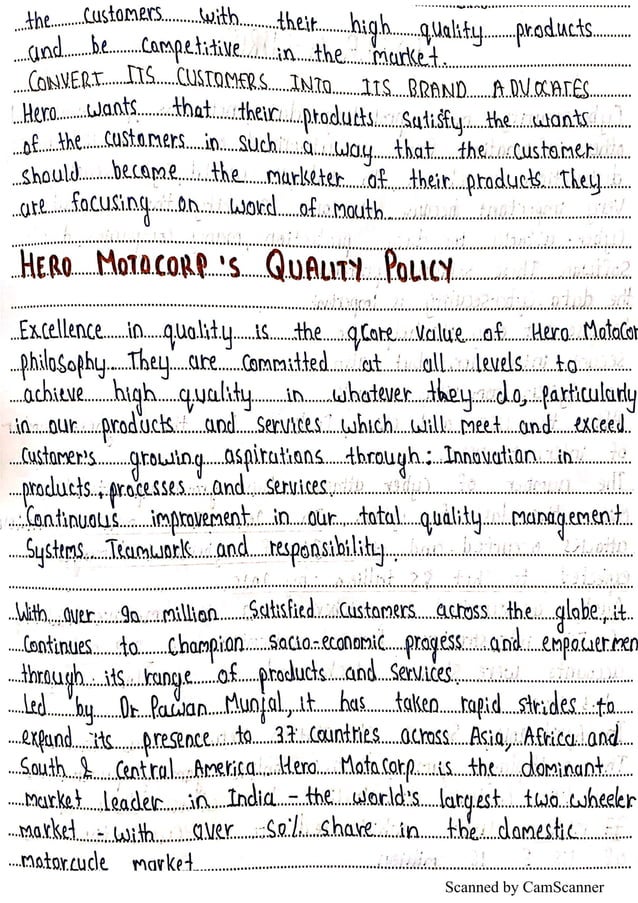 the customers with their high quality products
and be competitive in the market.
CONVERT ITS CUSTOMERS INTO ITS BRAND ADVOCATES
Hero wants that their products satisfy the wants
of the customers in such a way that the customer
should become the marketer of their products. They
are focusing on word of mouth.
HERO MOTOCORP'S QUALITY POLICY
Excellence in quality is the qCore value of Hero MotoCor
philosophy. They are committed at all levels to
achieve high quality in whatever they do, particularly
in our products and services which will meet and exceed
customer's growing aspirations through: Innovation in
products, processes and services.
Continuous improvement in our total quality management
Systems. Teamwork and responsibility.
With over 90 million satisfied customers across the globe, it
Continues to champion socio-economic progess and empowermen
through its range of products and services.
Led by Dr. Pawan Munjal, it has taken rapid strides to
expand its presence to 37 countries across Asia, Africa and
South & Central America. Hero MotoCorp is the dominant
market leader in India - the world's largest two wheeler
market - with over 50% share in the domestic
motorcycle market
Scanned by CamScanner